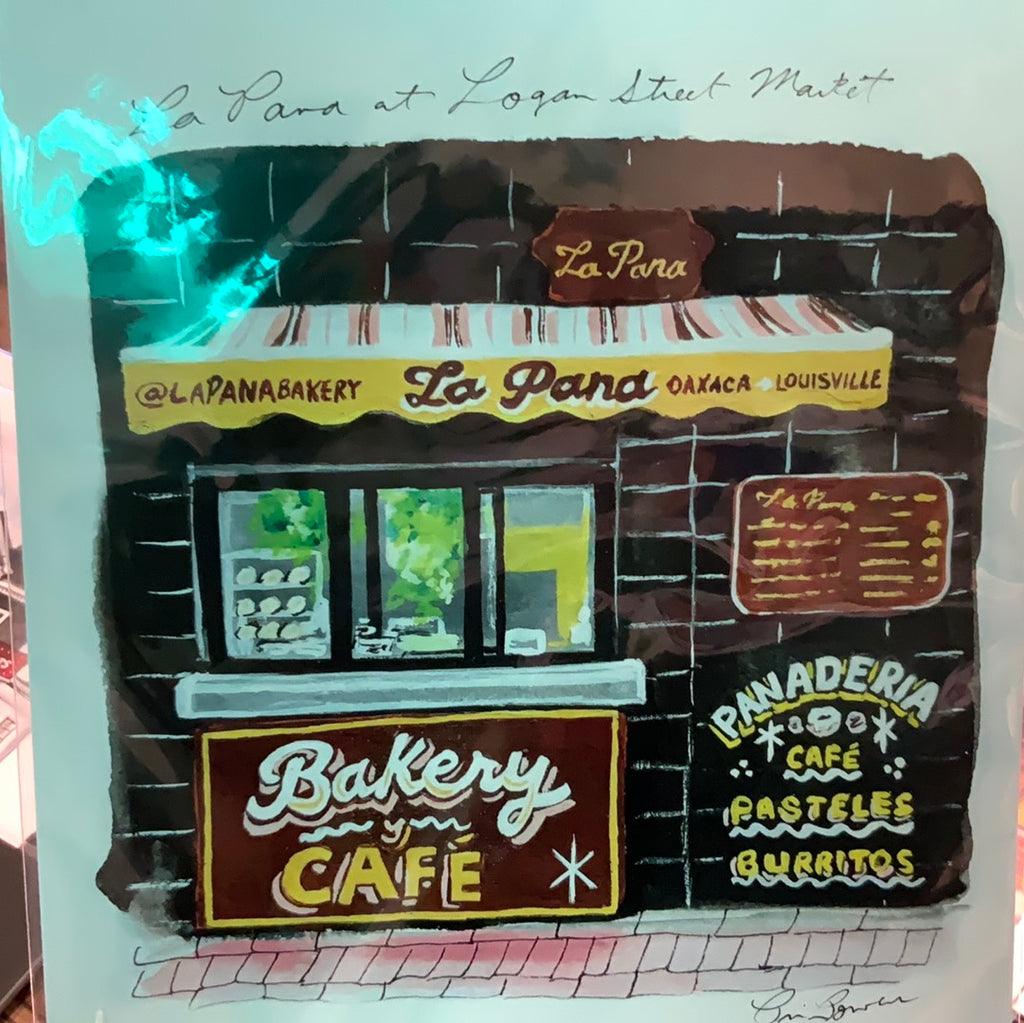 La Pana at Logan Street Market
La Pana
@LAPANABAKERY La Pana OAXACA LOUISVILLE
La Pana
PANADERIA
CAFÉ
PASTELES
BURRITOS
Bakery
y
CAFÉ